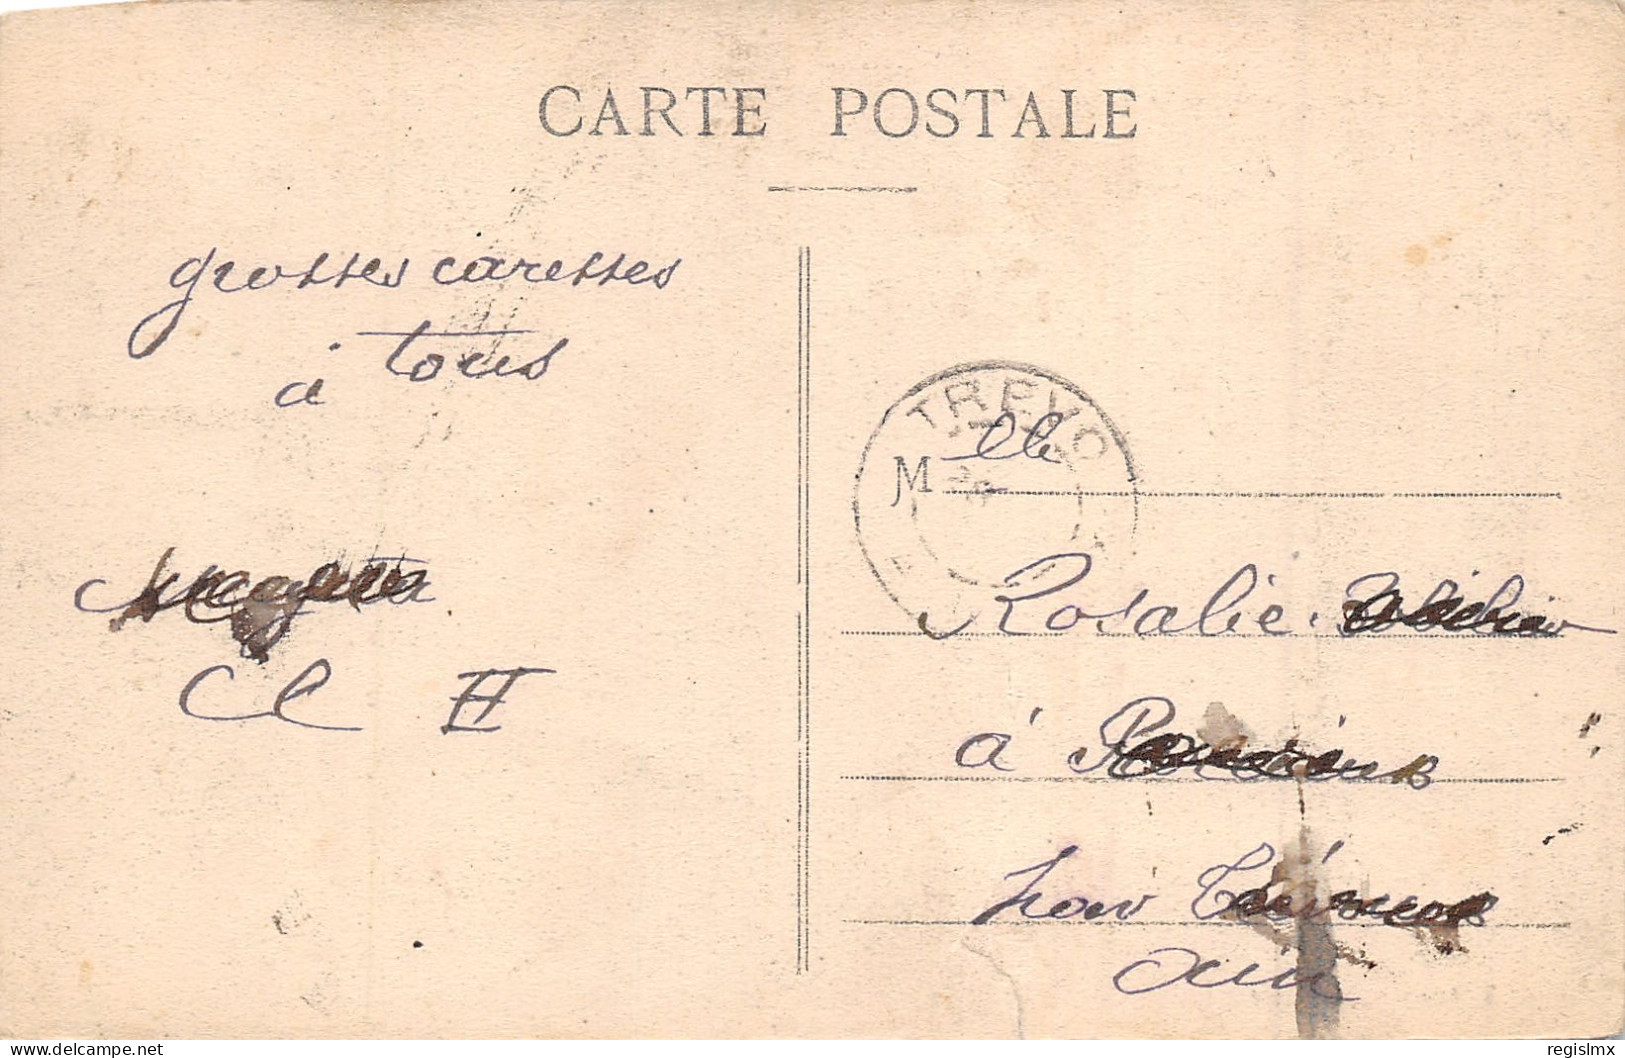 CARTE POSTALE
grosses caresses
à tous
Cl II
TREVO
Mlle
Rosalie
à
par
Ain
delcampe.net
regislmx